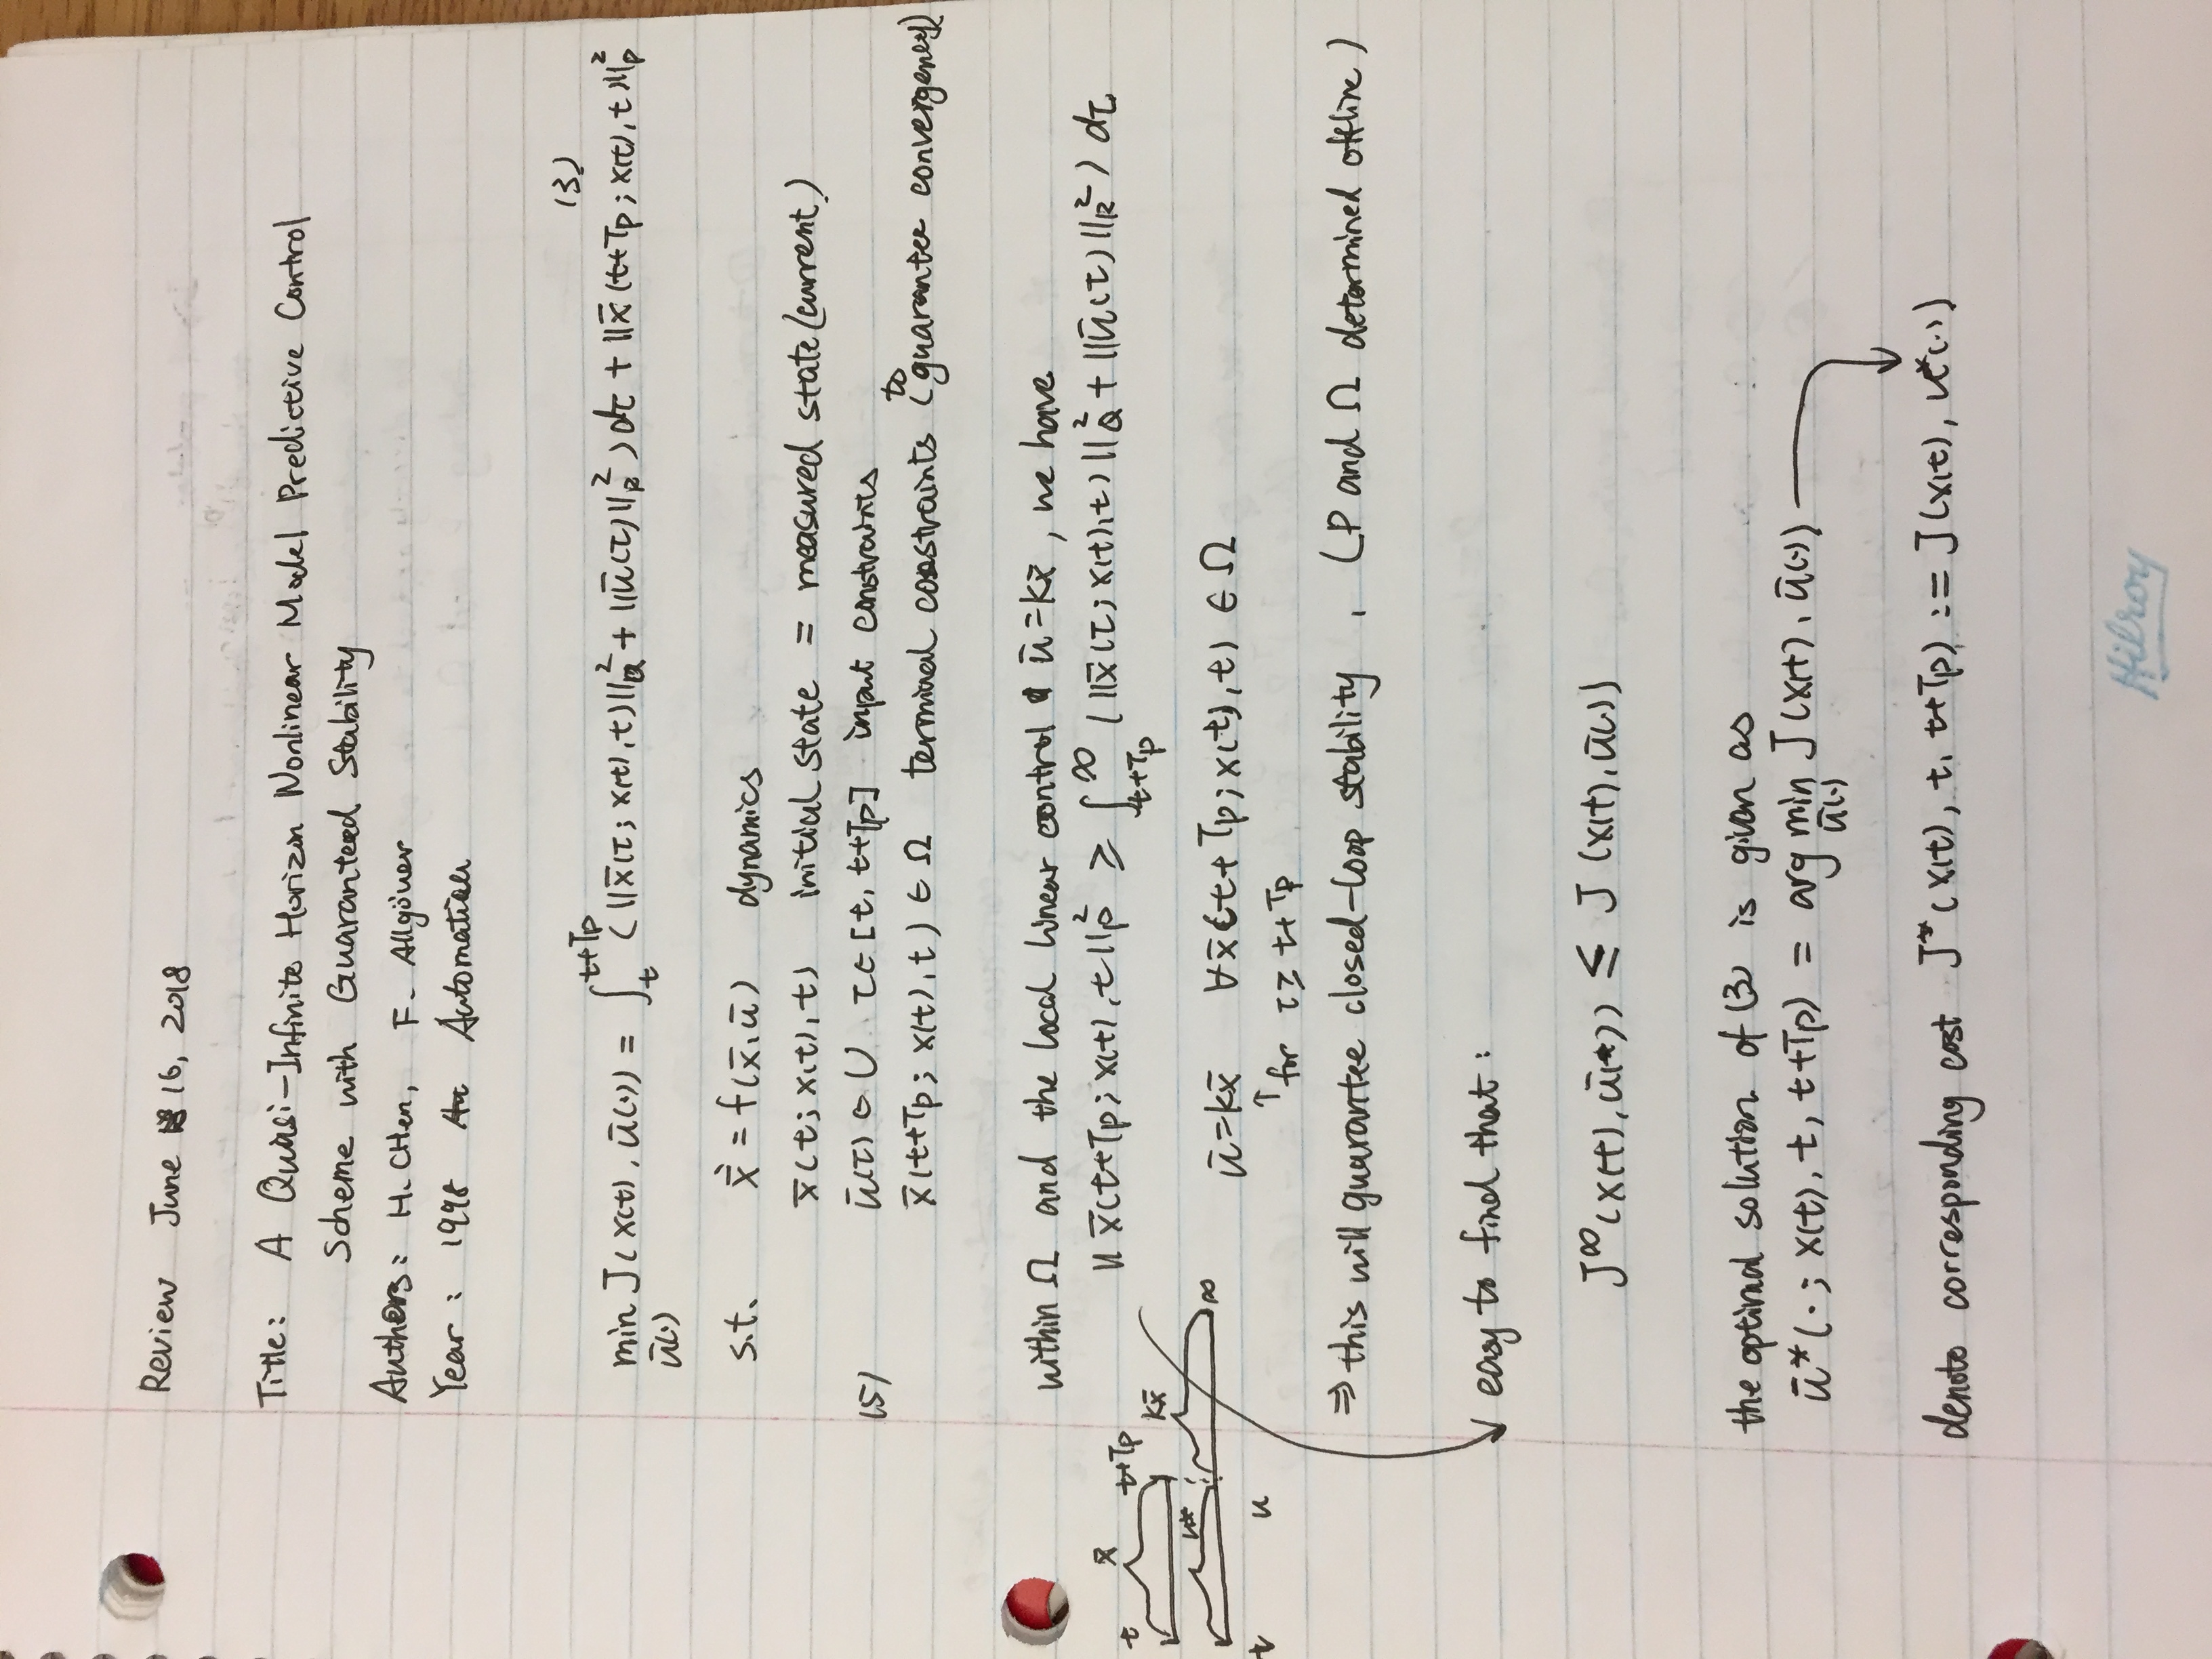 Review June 16, 2018
Title: A Quasi-Infinite Horizon Nonlinear Model Predictive Control
Scheme with Guaranteed Stability
Authors: H. CHen, F. Allgöwer
Year: 1998 Au Automatica
(3)
min J(x(t), ū(·)) = ∫ₜ^{t+Tp} (‖x̄(τ; x(t), t)‖²_Q + ‖ū(τ)‖²_R) dτ + ‖x̄(t+Tp; x(t), t)‖²_P
ū(·)
s.t. x̄̇ = f(x̄, ū) dynamics
x̄(t; x(t), t) initial state = measured state (current)
(5) ū(τ) ∈ U τ ∈ [t, t+Tp] input constraints
x̄(t+Tp; x(t), t) ∈ Ω terminal constraints (to guarantee convergency)
within Ω and the local linear control ū = Kx̄, we have
‖x̄(t+Tp; x(t), t‖²_P ≥ ∫_{t+Tp}^∞ (‖x̄(τ; x(t), t)‖²_Q + ‖ū(τ)‖²_R) dτ
x̄
t t+Tp
Kx̄
u* ∞
t u
ū = Kx̄ ∀x̄(t+Tp; x(t), t) ∈ Ω
↑ for τ ≥ t+Tp
⇒ this will guarantee closed-loop stability , (P and Ω determined offline)
easy to find that:
J^∞(x(t), ū(·)) ≤ J(x(t), ū(·))
the optimal solution of (3) is given as
ū*(·; x(t), t, t+Tp) = arg min J(x(t), ū(·))
ū(·)
denote corresponding cost J*(x(t), t, t+Tp) := J(x(t), u*(·))
Hilroy